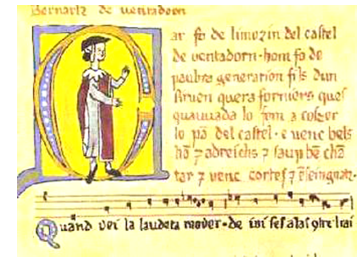 Bernartz de ventadorn
ar fo de limozin del castel
de ventadorn. hom fo de
paubra generation fils dun
siruen quera forniers ques
quauzaua lo forn a coszer
lo pā del castel. e venc bels
hō 7 adreichs 7 saup bē chā
tar 7 venc cortes 7 
Quand vei la laudeta mover. de ioi sas alas